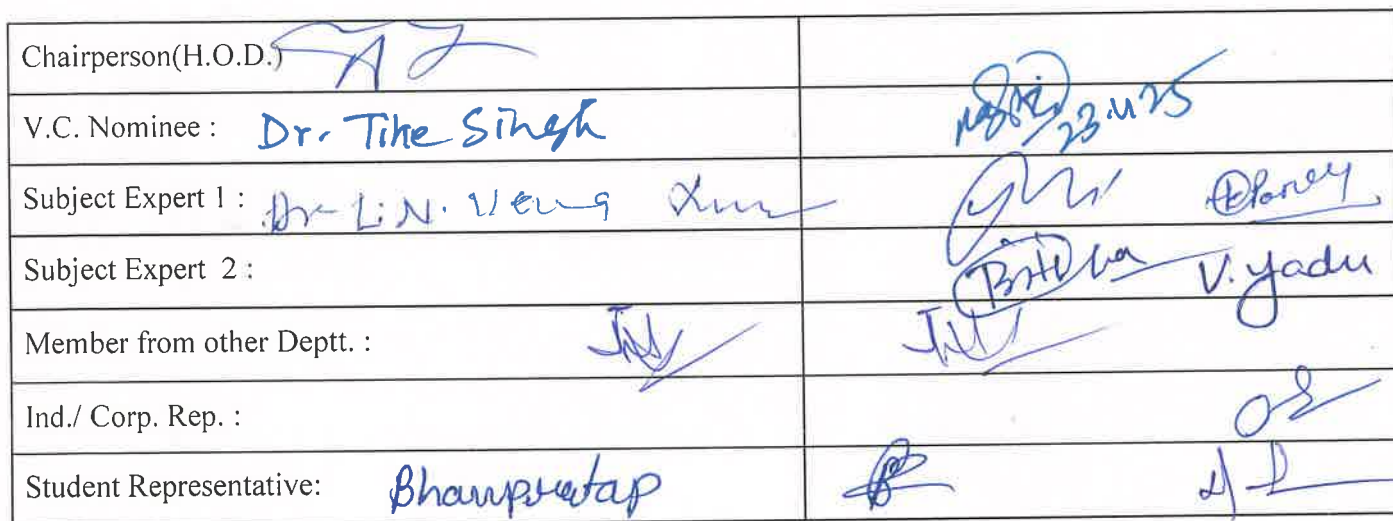 Chairperson(H.O.D.)
V.C. Nominee : Dr. Tike Singh 23.11.25
Subject Expert 1 : Dr. L.N. Verma
Subject Expert 2 : V. Yadu
Member from other Deptt. :
Ind./ Corp. Rep. :
Student Representative: Bhanupratap